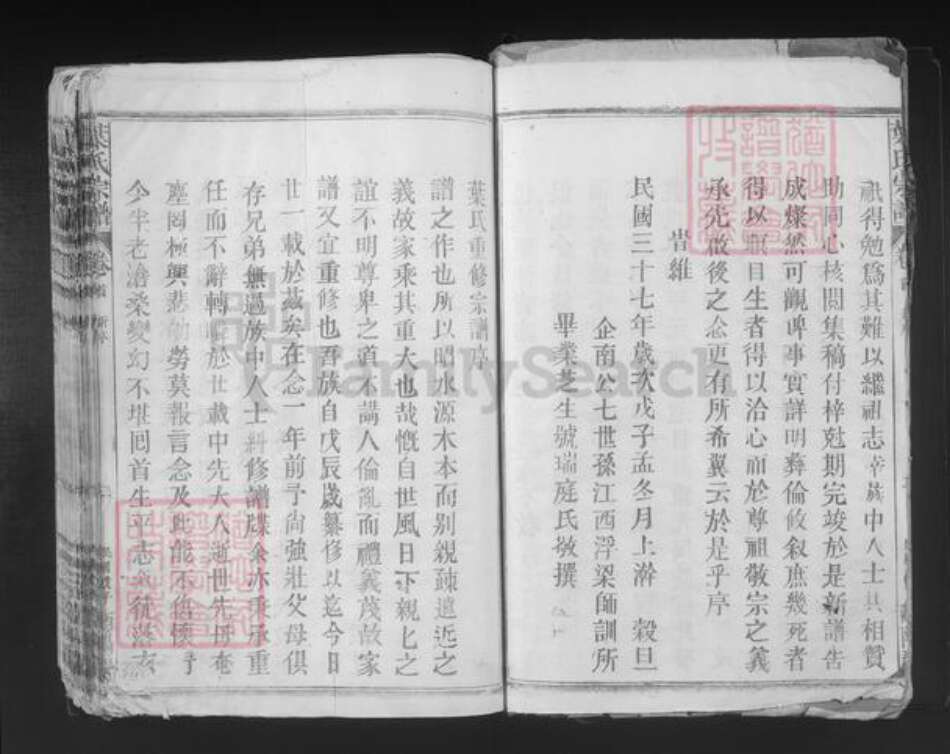 祇得勉爲其難以繼祖志幸族中人士共相贊
助同心核閱集稿付梓尅期完竣於是新譜告
成燦然可觀碑事實詳明彝倫攸叙庶幾死者
得以瞑目生者得以洽心而於尊祖敬宗之義
承先啟後之念更有所希翼云於是乎序
旹維
民國三十七年歲次戊子孟冬月上澣 穀旦
企南公七世孫江西浮梁師訓所
畢業芝生號瑞庭氏敬撰
葉氏重修宗譜序
譜之作也所以昭水源木本而别親疎遠近之
義故家乘其重大也哉慨自世風日下親匕之
誼不明尊卑之道不講人倫亂而禮義茂故家
譜又宜重修也吾族自戊辰歲纂修以迄今日
廿一載於茲矣在念一年前予尚強壯父母俱
存兄弟無過族中人士糾修譜牒余亦秉承重
任而不辭轉瞬於廿載中先大人逝世先母奄
塵罔極興悲劬勞莫報言念及此能不傷懷予
今半老滄桑變幻不堪囘首生平志氣徒落玄
葉氏宗譜
卷
FamilySearch